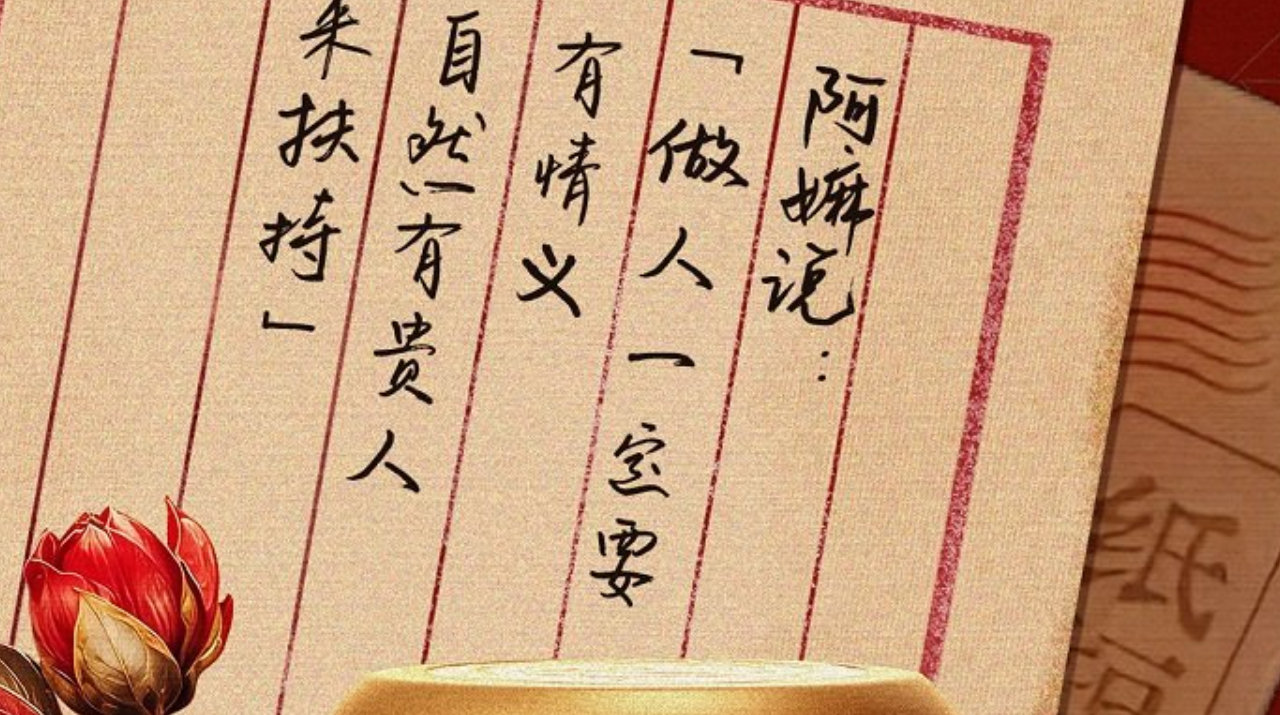 阿嫲说：
「做人一定要
有情义
自然有贵人
来扶持」
纸